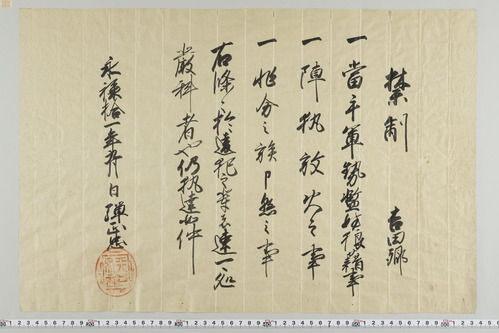 禁制 吉田郷
一當手軍勢濫妨狼藉事
一陣執放火之事
一非分之族申懸之事
右條々於違犯之輩者速可処
嚴科者也仍執達如件
永禄拾一年九月日 弾正忠